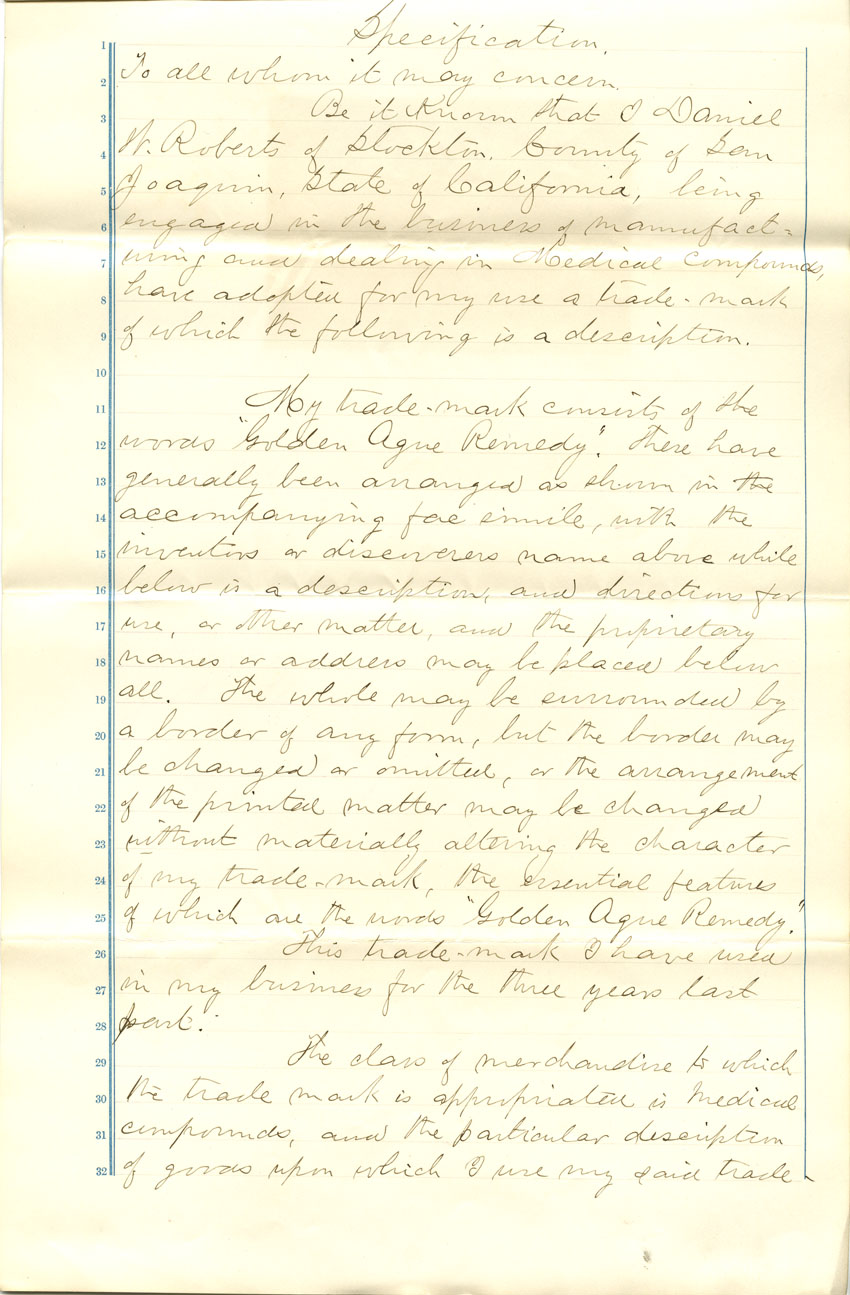 Specification.
1
To all whom it may concern.
2
Be it Known that I Daniel
3
W. Roberts of Stockton, County of San
4
Joaquin, State of California, being
5
engaged in the business of manufact=
6
uring and dealing in Medical Compounds,
7
have adopted for my use a trade-mark
8
of which the following is a description.
9
10
My trade-mark consists of the
11
words "Golden Ague Remedy". These have
12
generally been arranged as shown in the
13
accompanying fac simile, with the
14
inventors or discoverers name above while
15
below is a description, and directions for
16
use, or other matter, and the proprietary
17
names or address may be placed below
18
all. The whole may be surrounded by
19
a border of any form, but the border may
20
be changed or omitted, or the arrangement
21
of the printed matter may be changed
22
without materially altering the character
23
of my trade-mark, the essential features
24
of which are the words "Golden Ague Remedy."
25
This trade-mark I have used
26
in my business for the three years last
27
past.
28
The class of merchandise to which
29
the trade mark is appropriated is Medical
30
compounds, and the particular description
31
of goods upon which I use my said trade-
32